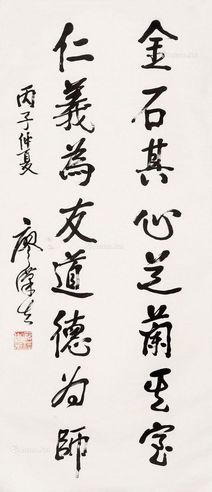 金石其心芝蘭其室
仁義為友道德為師
丙子仲夏
廖漢生